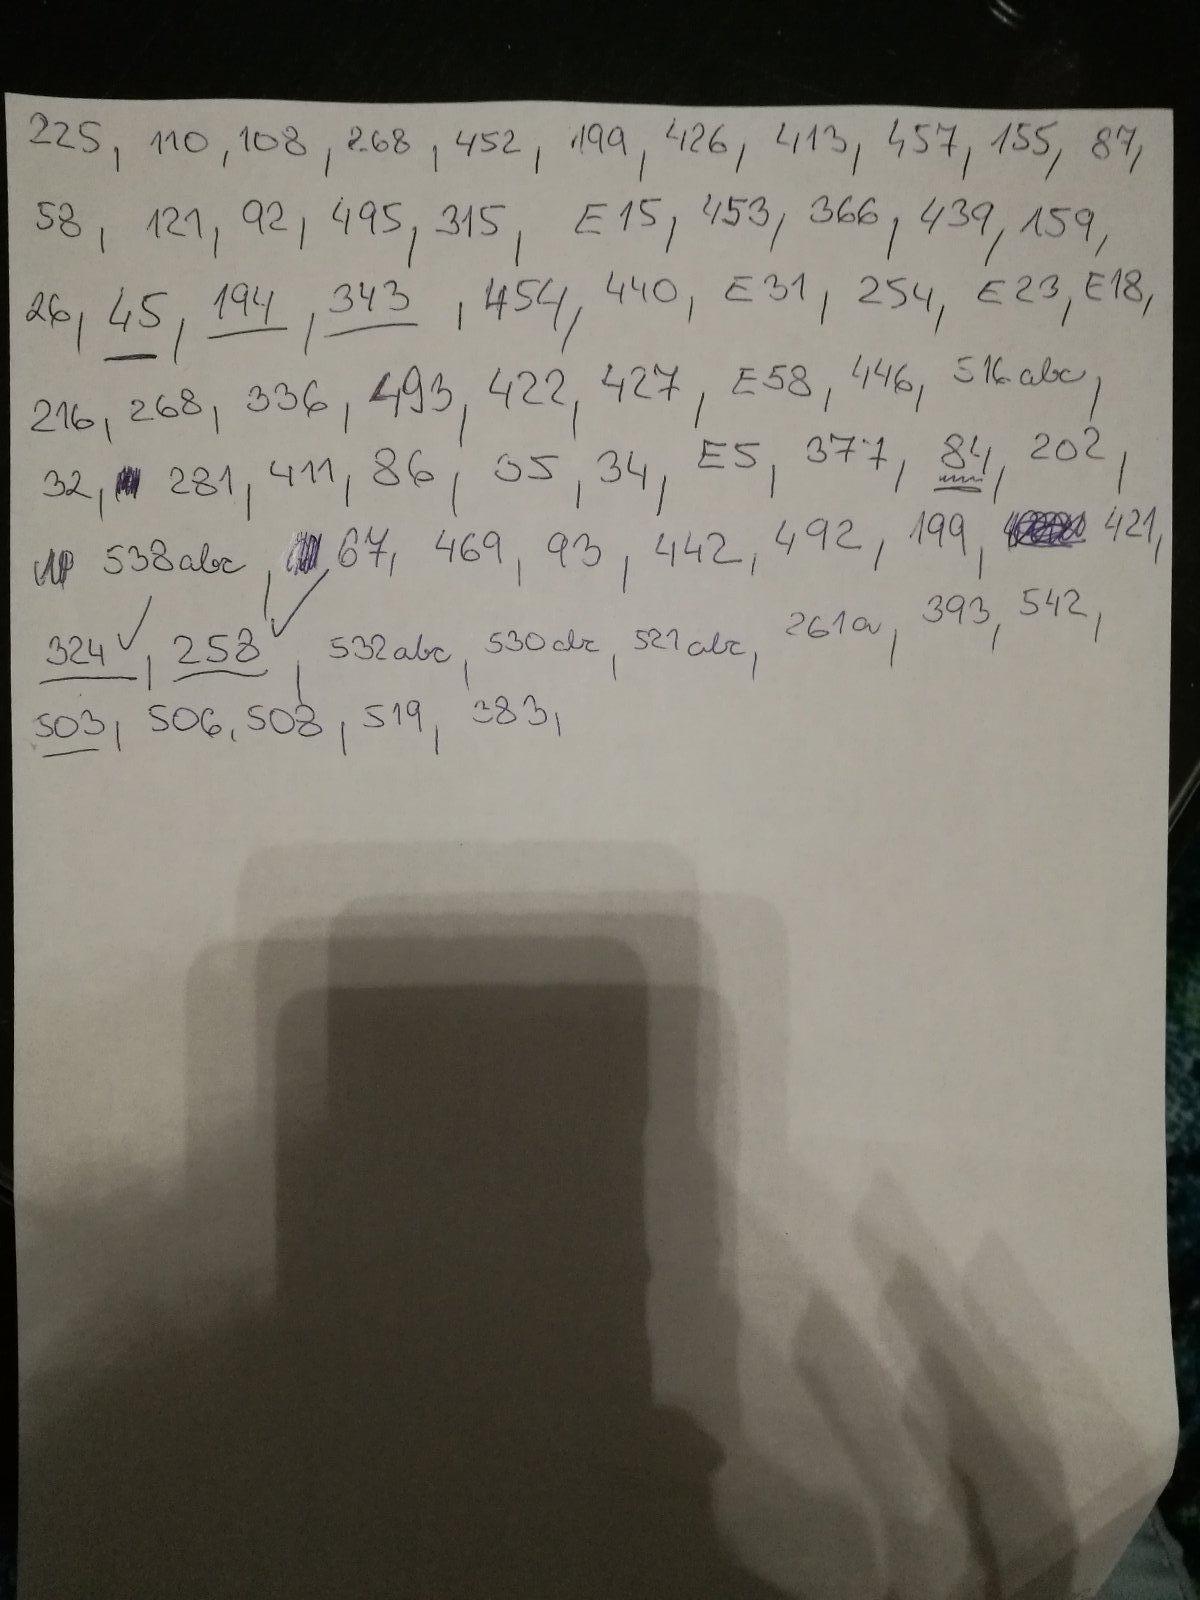 225, 110, 108, 268, 452, 199, 426, 413, 457, 155, 87,
58, 121, 92, 495, 315, E15, 453, 366, 439, 159,
26, 45, 194, 343, 454, 440, E31, 254, E23, E18,
216, 268, 336, 493, 422, 427, E58, 446, 516abc,
32, 281, 411, 86, 35, 34, E5, 377, 84, 202,
538abc, 67, 469, 93, 442, 492, 199, 421,
324 ✓, 258 ✓, 532abc, 530abc, 521abc, 261a, 393, 542,
503, 506, 508, 519, 383,